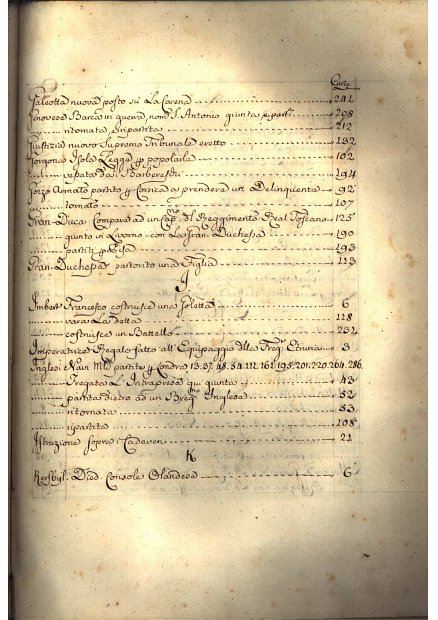 Carte
Galeotta nuova posto su La Carena 241
Genovese Barca in guerra, nom.ª S. Antonio giunta, e part.ª 208
ritornata, e ripartita 212
Giustizia nuovo Supremo Tribunale eretto 132
Gorgona Isola Legge p popolarla 102
vessata da Barbareschi 194
Gozzo Armato partito p Corsica a prender un Delinquente 92
tornato 107
Gran-Duca Comparsa ad un del Reggimento Real Toscano 125
giunto in Livorno con La Gran Duchessa 190
partiti p Pisa 193
Gran-Duchessa partorito una Figlia 113
I
Imbert Francesco costruisce una Goletta 6
vara La detta 118
costruisce un Battello 232
Imperatrice Regalo fatto all' Equipaggio delle Freg.e Etruria 3
Inglesi e Navi partite p Londra 13. 37. 48. 54. 111. 161. 195. 201. 220. 264. 286.
Fregata L' Intrapresa qui giunta 43
partita dietro ad un Brig.º Inglese 52
ritornata 53
ripartita 108
Istruzione sopra i Cadaveri 21
K
Died. Console Olandese 6